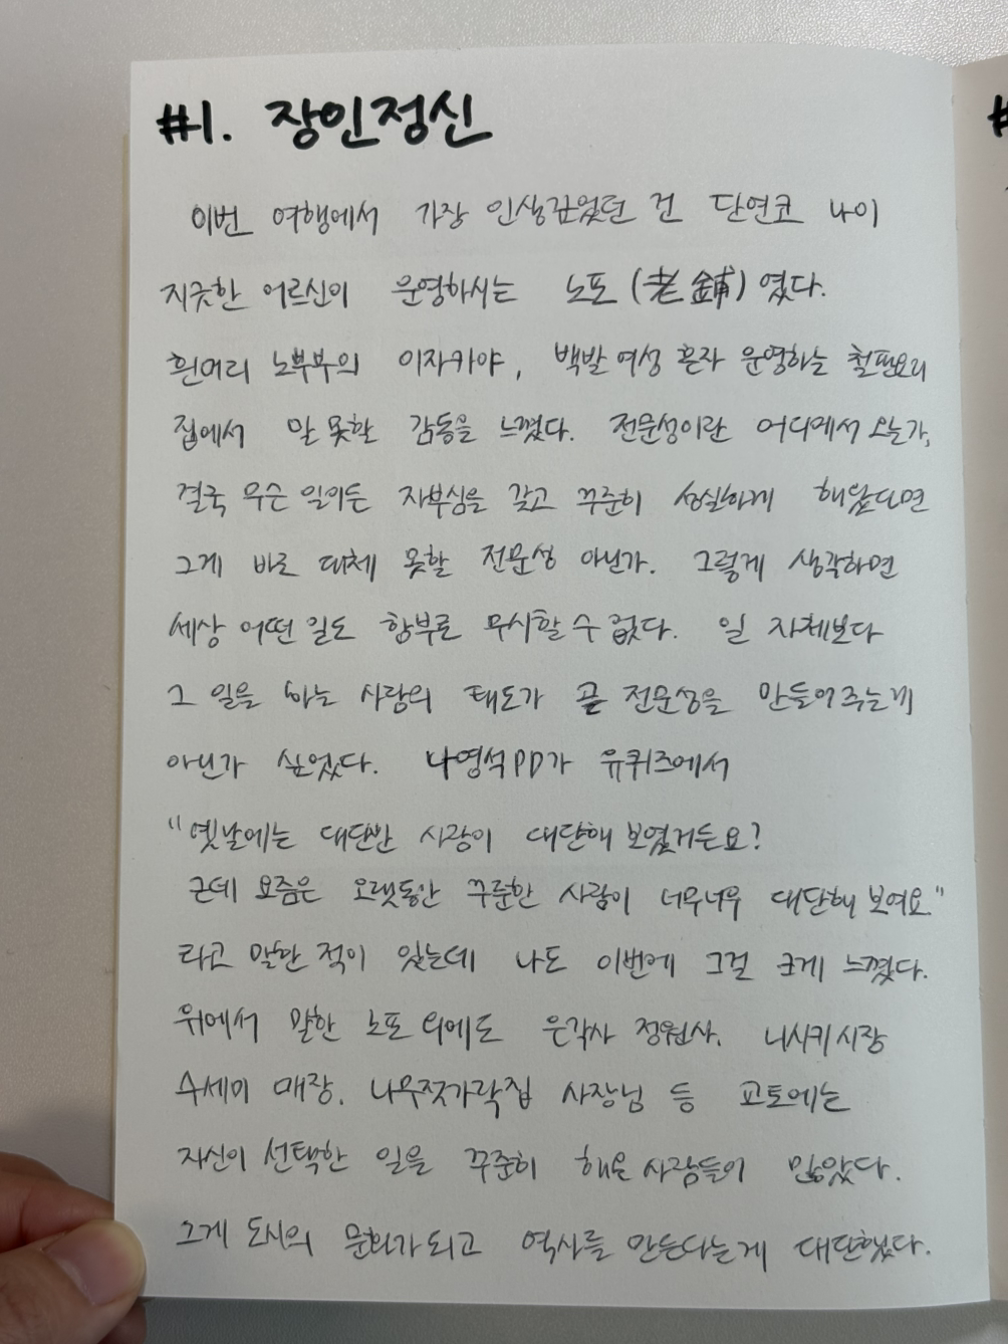 #1. 장인정신
이번 여행에서 가장 인상깊었던 건 단연코 나이
지긋한 어르신이 운영하시는 노포(老鋪)였다.
흰머리 노부부의 이자카야, 백발 여성 혼자 운영하는 철판요리
집에서 말 못할 감동을 느꼈다. 전문성이란 어디에서 오는가,
결국 무슨 일이든 자부심을 갖고 꾸준히 성실하게 해왔다면
그게 바로 대체 못할 전문성 아닌가. 그렇게 생각하면
세상 어떤 일도 함부로 무시할 수 없다. 일 자체보다
그 일을 하는 사람의 태도가 곧 전문성을 만들어주는게
아닌가 싶었다. 나영석PD가 유퀴즈에서
"옛날에는 대단한 사람이 대단해 보였거든요?
근데 요즘은 오랫동안 꾸준한 사람이 너무너무 대단해 보여요."
라고 말한 적이 있는데 나도 이번에 그걸 크게 느꼈다.
위에서 말한 노포 외에도 은각사 정원사, 니시키시장
수세미 매장, 나무젓가락집 사장님 등 교토에는
자신이 선택한 일을 꾸준히 해온 사람들이 많았다.
그게 도시의 문화가 되고 역사를 만든다는게 대단했다.
#